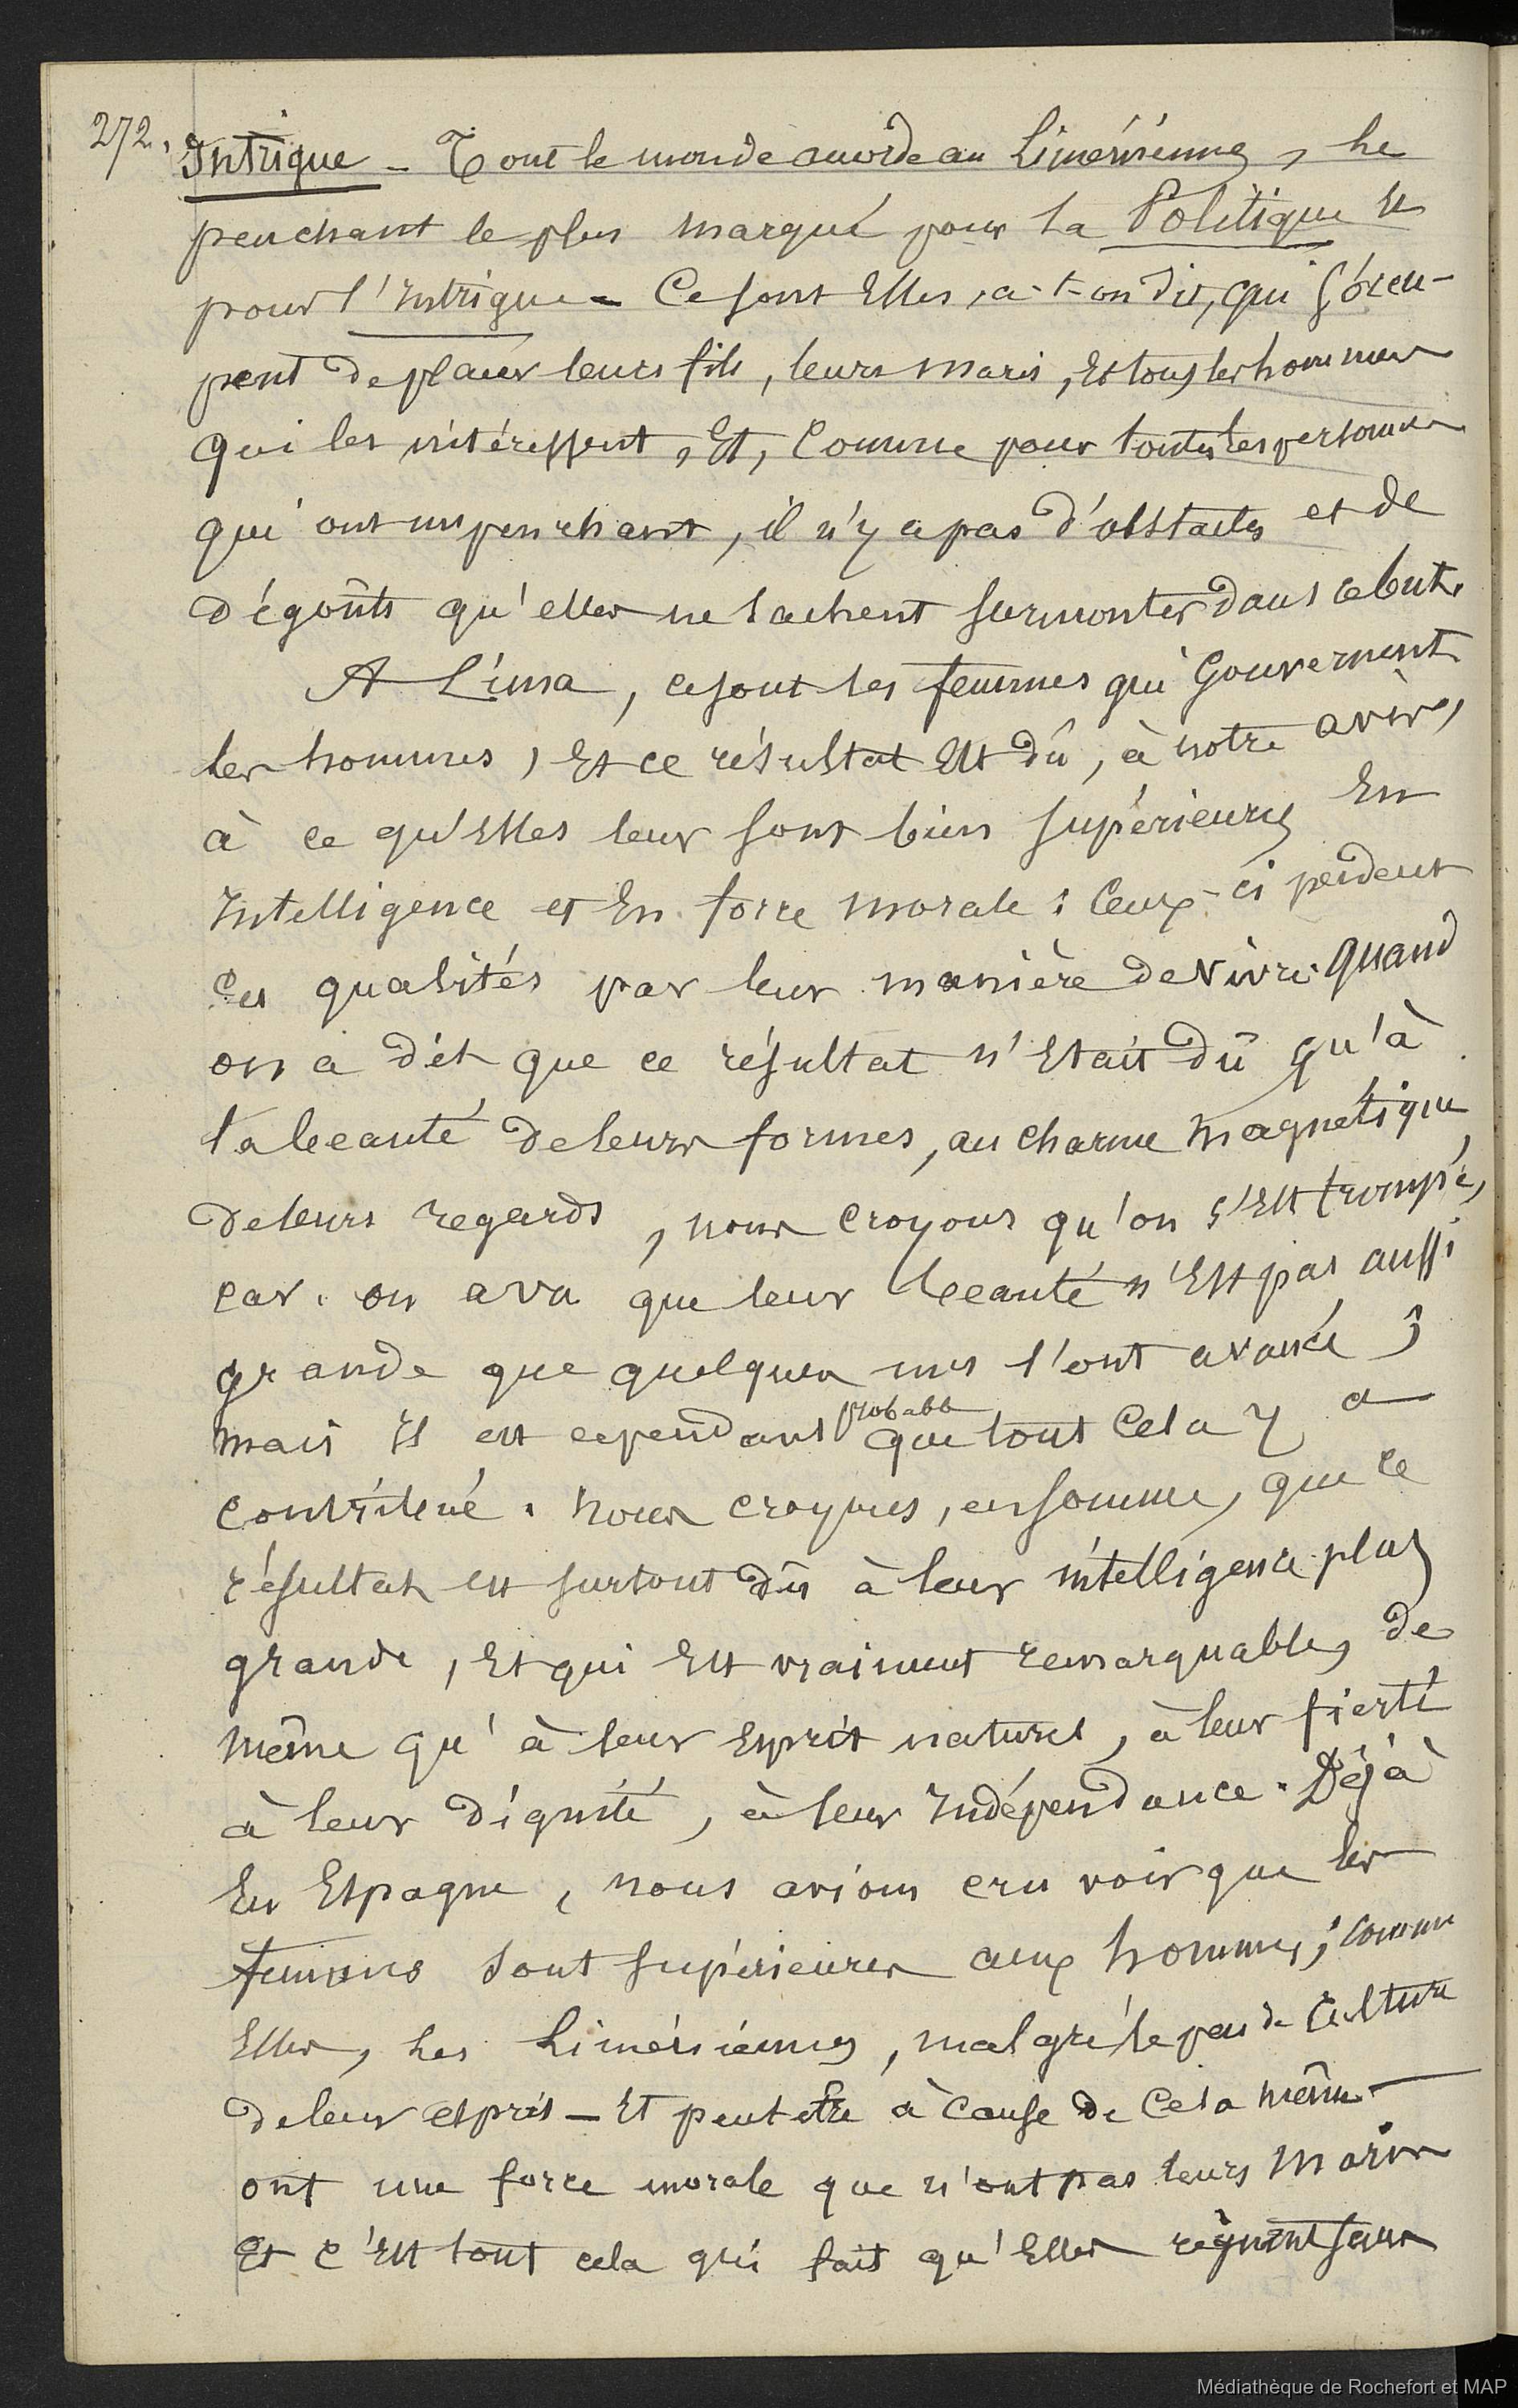 272.
Intrique - Tout le monde accorde au Liméniennes, le
penchant le plus marqué pour la Politique et
pour l'Intrigue - Ce sont Elles, a-t-on dit, qui s'occu-
pent de placer leurs fils, leurs maris, Et tous les hommes
qui les intéressent, Et, Comme pour toutes les personnes
qui ont un penchant, il n'y a pas d'obstacles et de
dégoûts qu'elles ne sachent surmonter dans ce but.
A Lima, ce sont les femmes qui Gouvernent
les hommes, Et ce résultat Est dû, à notre avis,
à ce qu'Elles leur sont bien supérieures En
Intelligence et En force morale : Ceux-ci perdent
ces qualités par leur manière de vivre. Quand
on a dit que ce résultat n'Etait dû qu'à
la beauté de leurs formes, au charme magnétique
de leurs regards, nous croyons qu'on s'Est trompé,
car on a vu que leur beauté n'Est pas aussi
grande que quelques uns l'ont avancé ;
mais il est cependant probable que tout Cela y a
contribué. Nous croyons, en somme, que ce
résultat est surtout dû à leur intelligence plus
grande, Et qui Est vraiment remarquable, de
même qu'à leur Esprit naturel, à leur fierté
à leur dignité, à leur Indépendance. Déjà
En Espagne, nous avions cru voir que les
femmes sont supérieures aux hommes ; comme
Elles, les Liméniennes, malgré le peu de Culture
de leur esprit - Et peut etre à Cause de Cela même -
ont une force morale que n'ont pas leurs maris
Et c'Est tout cela qui fait qu'Elles règnent sur
Médiathèque de Rochefort et MAP